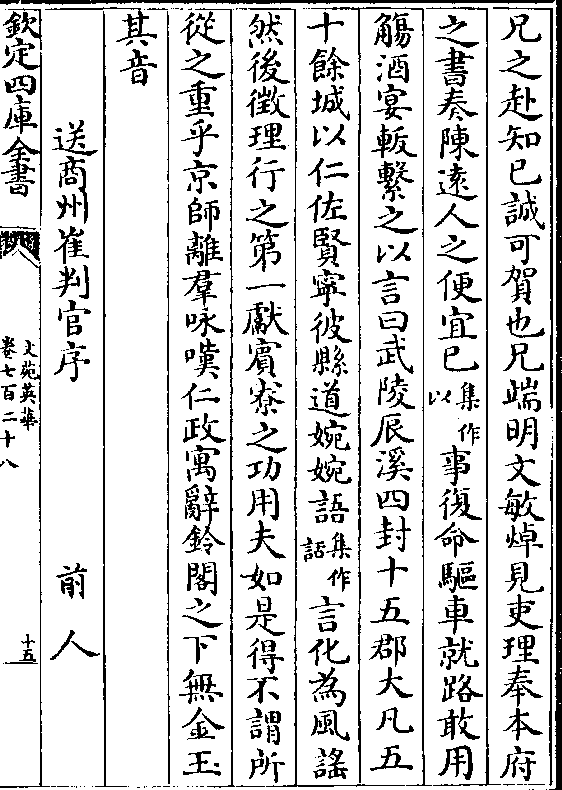 兄之赴知己誠可賀也兄端明文敏焯見吏理奉本府
之書奏陳遠人之便宜已集作以事復命驅車就路敢用
觴酒宴輒繫之以言曰武陵辰溪四封十五郡大凡五
十餘城以仁佐賢寧彼縣道婉婉語集作話言化為風謠
然後徵理行之第一獻賓寮之功用夫如是得不謂所
從之重乎京師離羣咏嘆仁政寓辭鈴閣之下無金玉
其音
送商州崔判官序 前人
欽定四庫全書
文苑英華
卷七百二十八
十五